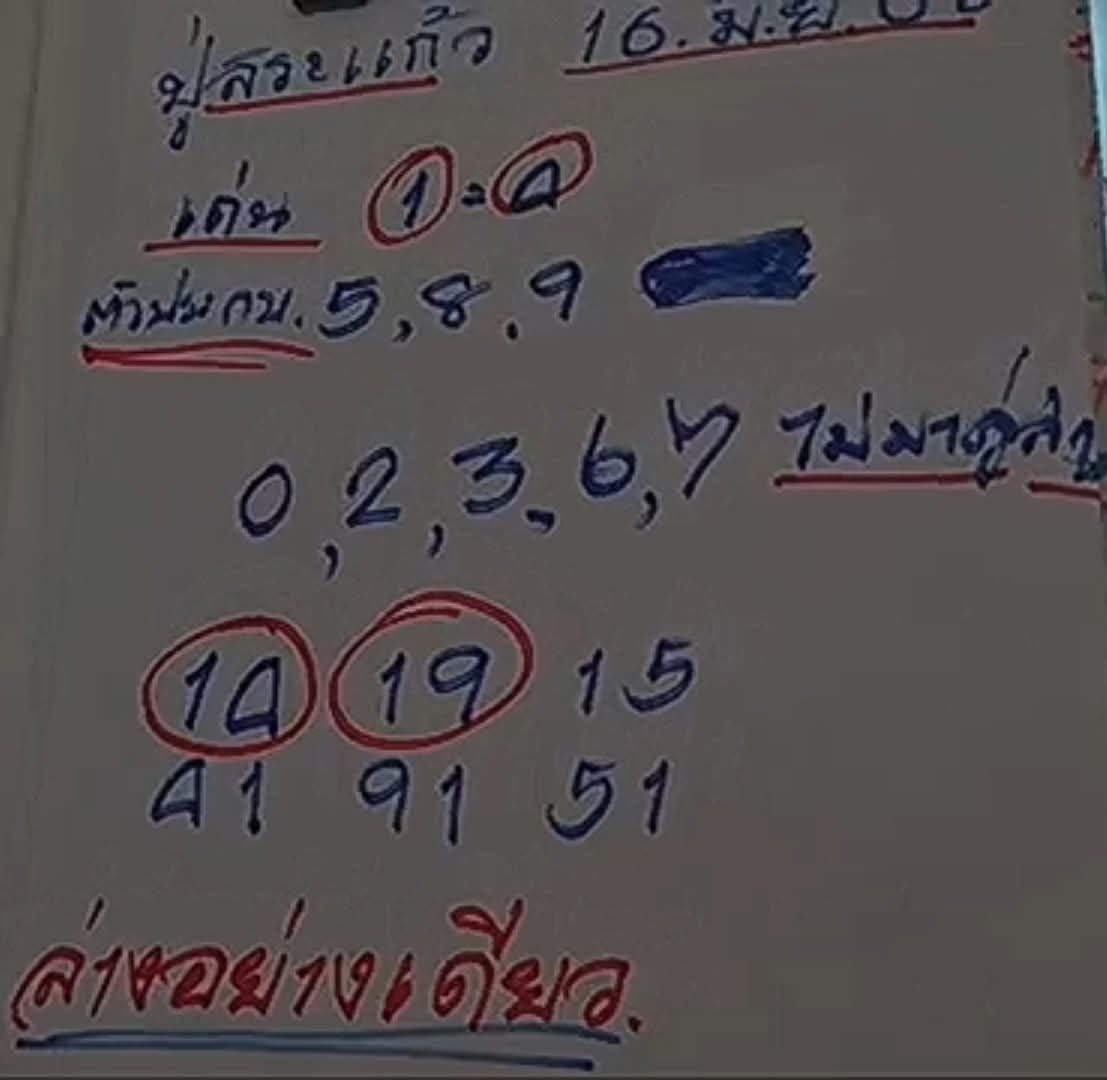 ปู่สระแก้ว 16.มิ.ย.
เด่น 1=4
ตัวประกบ. 5,8.9
0,2,3,6,7 ไม่มาคู่ล่าง
14 19 15
41 91 51
ล่างอย่างเดียว.